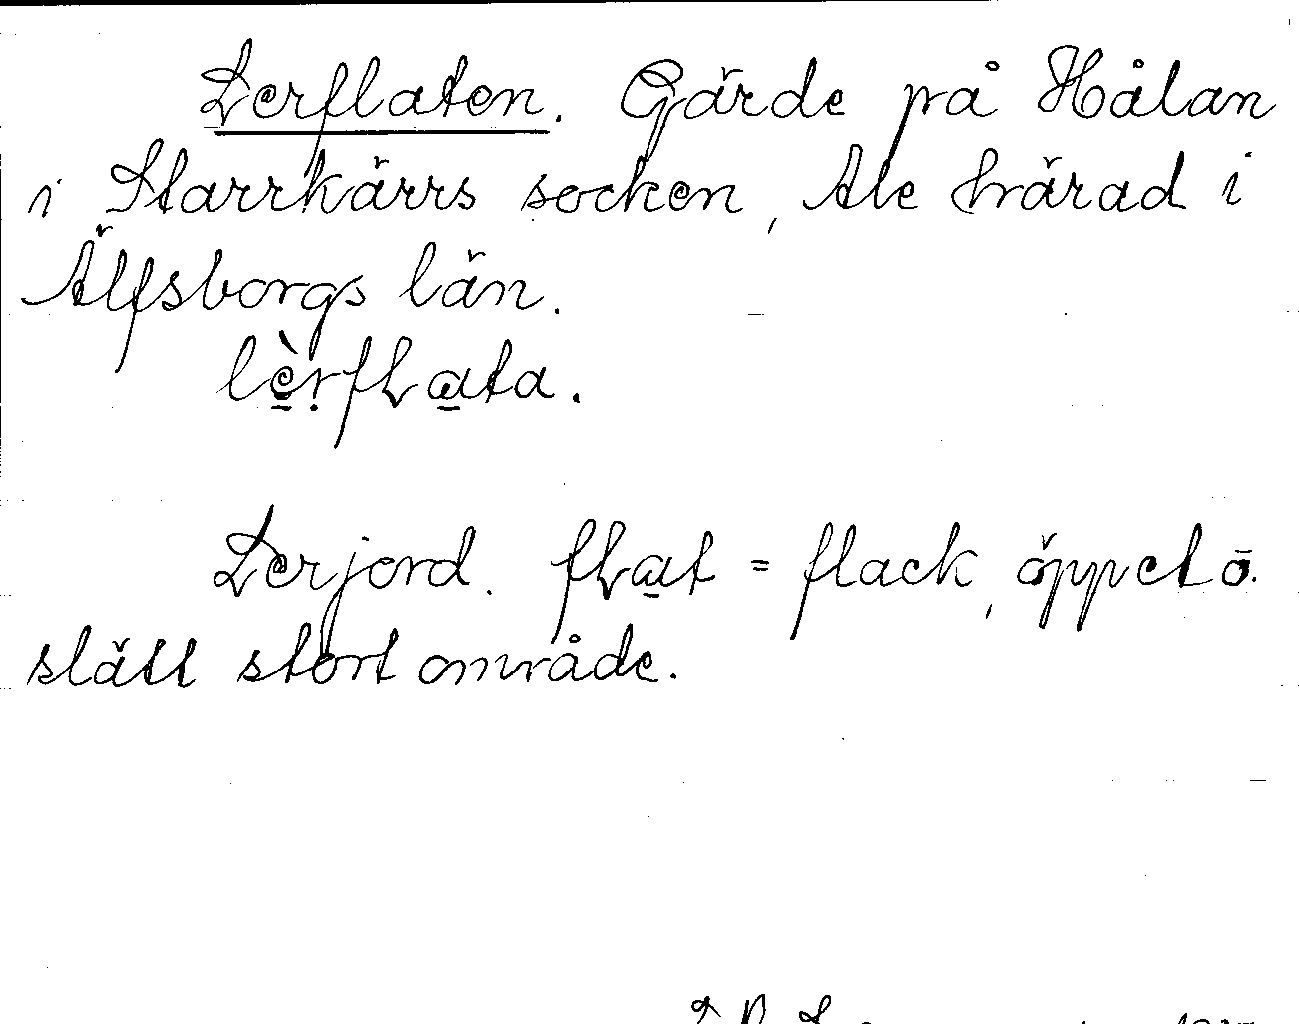 Lerflaten. Gärde på Hålan
i Starrkärrs socken, Ale härad i
Älfsborgs län.
lèṛfLa̲ta.
Lerjord. fLa̲t = flack, öppet o.
slätt stort område.